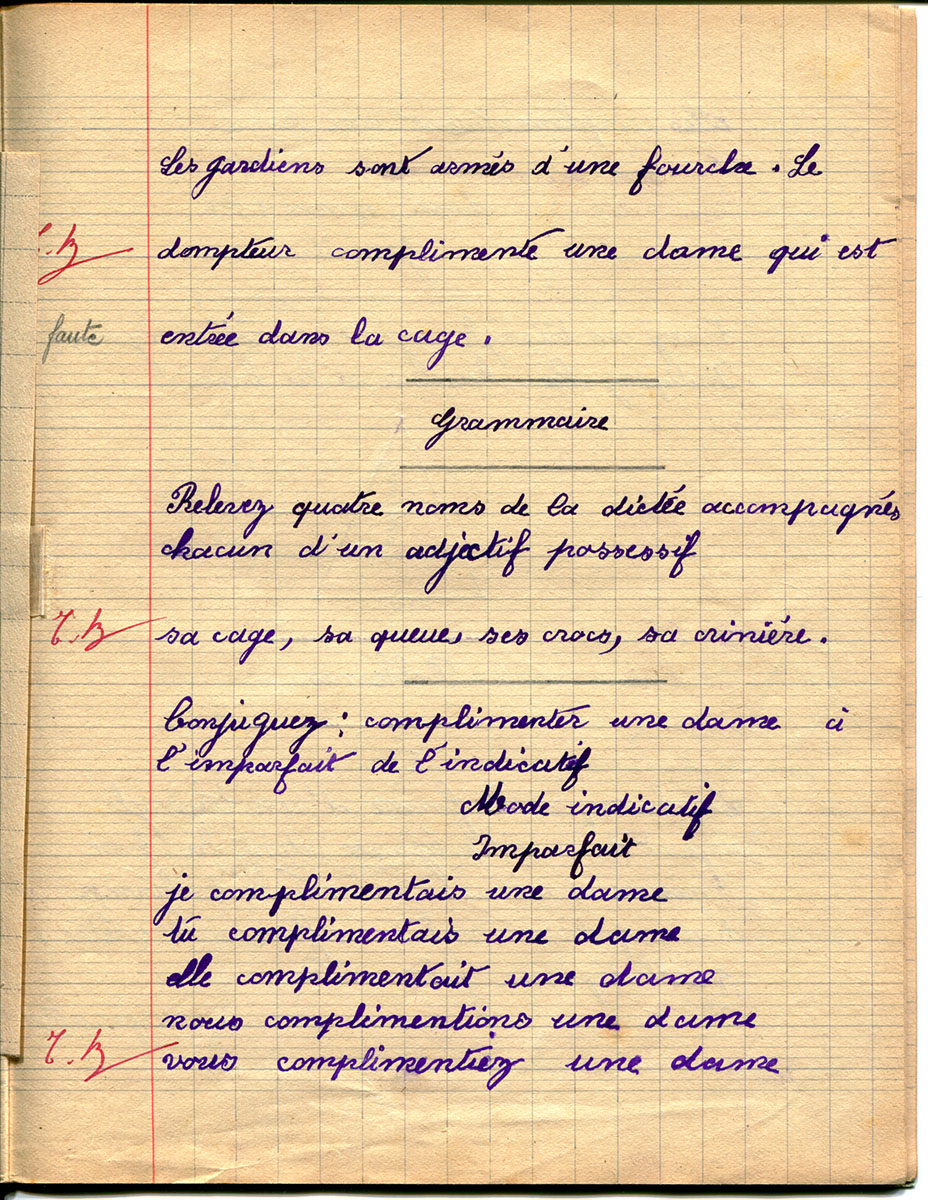 Les gardiens sont armés d'une fourche. Le
T.B dompteur complimente une dame qui est
faute entrée dans la cage.
Grammaire
Relevez quatre noms de la dictée accompagnés
chacun d'un adjectif possessif
T.B sa cage, sa queue, ses crocs, sa crinière.
Conjuguez : complimenter une dame à
l'imparfait de l'indicatif
Mode indicatif
Imparfait
je complimentais une dame
tu complimentais une dame
elle complimentait une dame
nous complimentions une dame
T.B vous complimentiez une dame